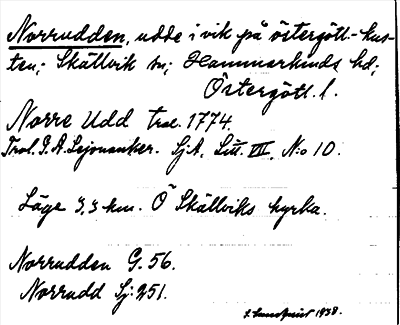 Norrudden, udde i vik på östergötl.-kus-
ten; Skällvik sn; Hammarkinds hd;
Östergötl. l.
Norre Udd trol. 1774.
Trol. G. A. Lejonanker. Sj.A. Litt. VII, N:o 10.
Läge 3,3 km. Ö Skällviks kyrka.
Norrudden G. 56.
Norrudd Sj: 251.
1938.